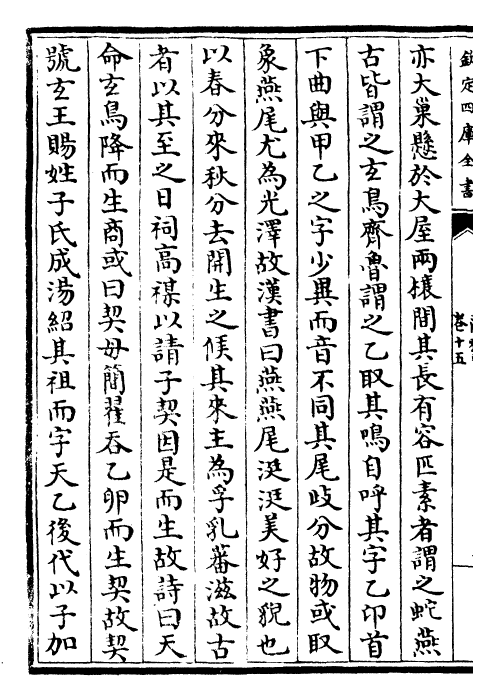 欽定四庫全書
卷十五
亦大巢懸於大屋兩榱間其長有容匹素者謂之蛇燕
古皆謂之玄鳥齊魯謂之乙取其鳴自呼其字乙卬首
下曲與甲乙之字少異而音不同其尾歧分故物或取
象燕尾尤為光澤故漢書曰燕燕尾涎涎美好之貎也
以春分來秋分去開生之候其來主為孚乳蕃滋故古
者以其至之日祠高禖以請子契因是而生故詩曰天
命玄鳥降而生商或曰契母簡翟吞乙卵而生契故契
號玄王賜姓子氏成湯紹其祖而字天乙後代以子加